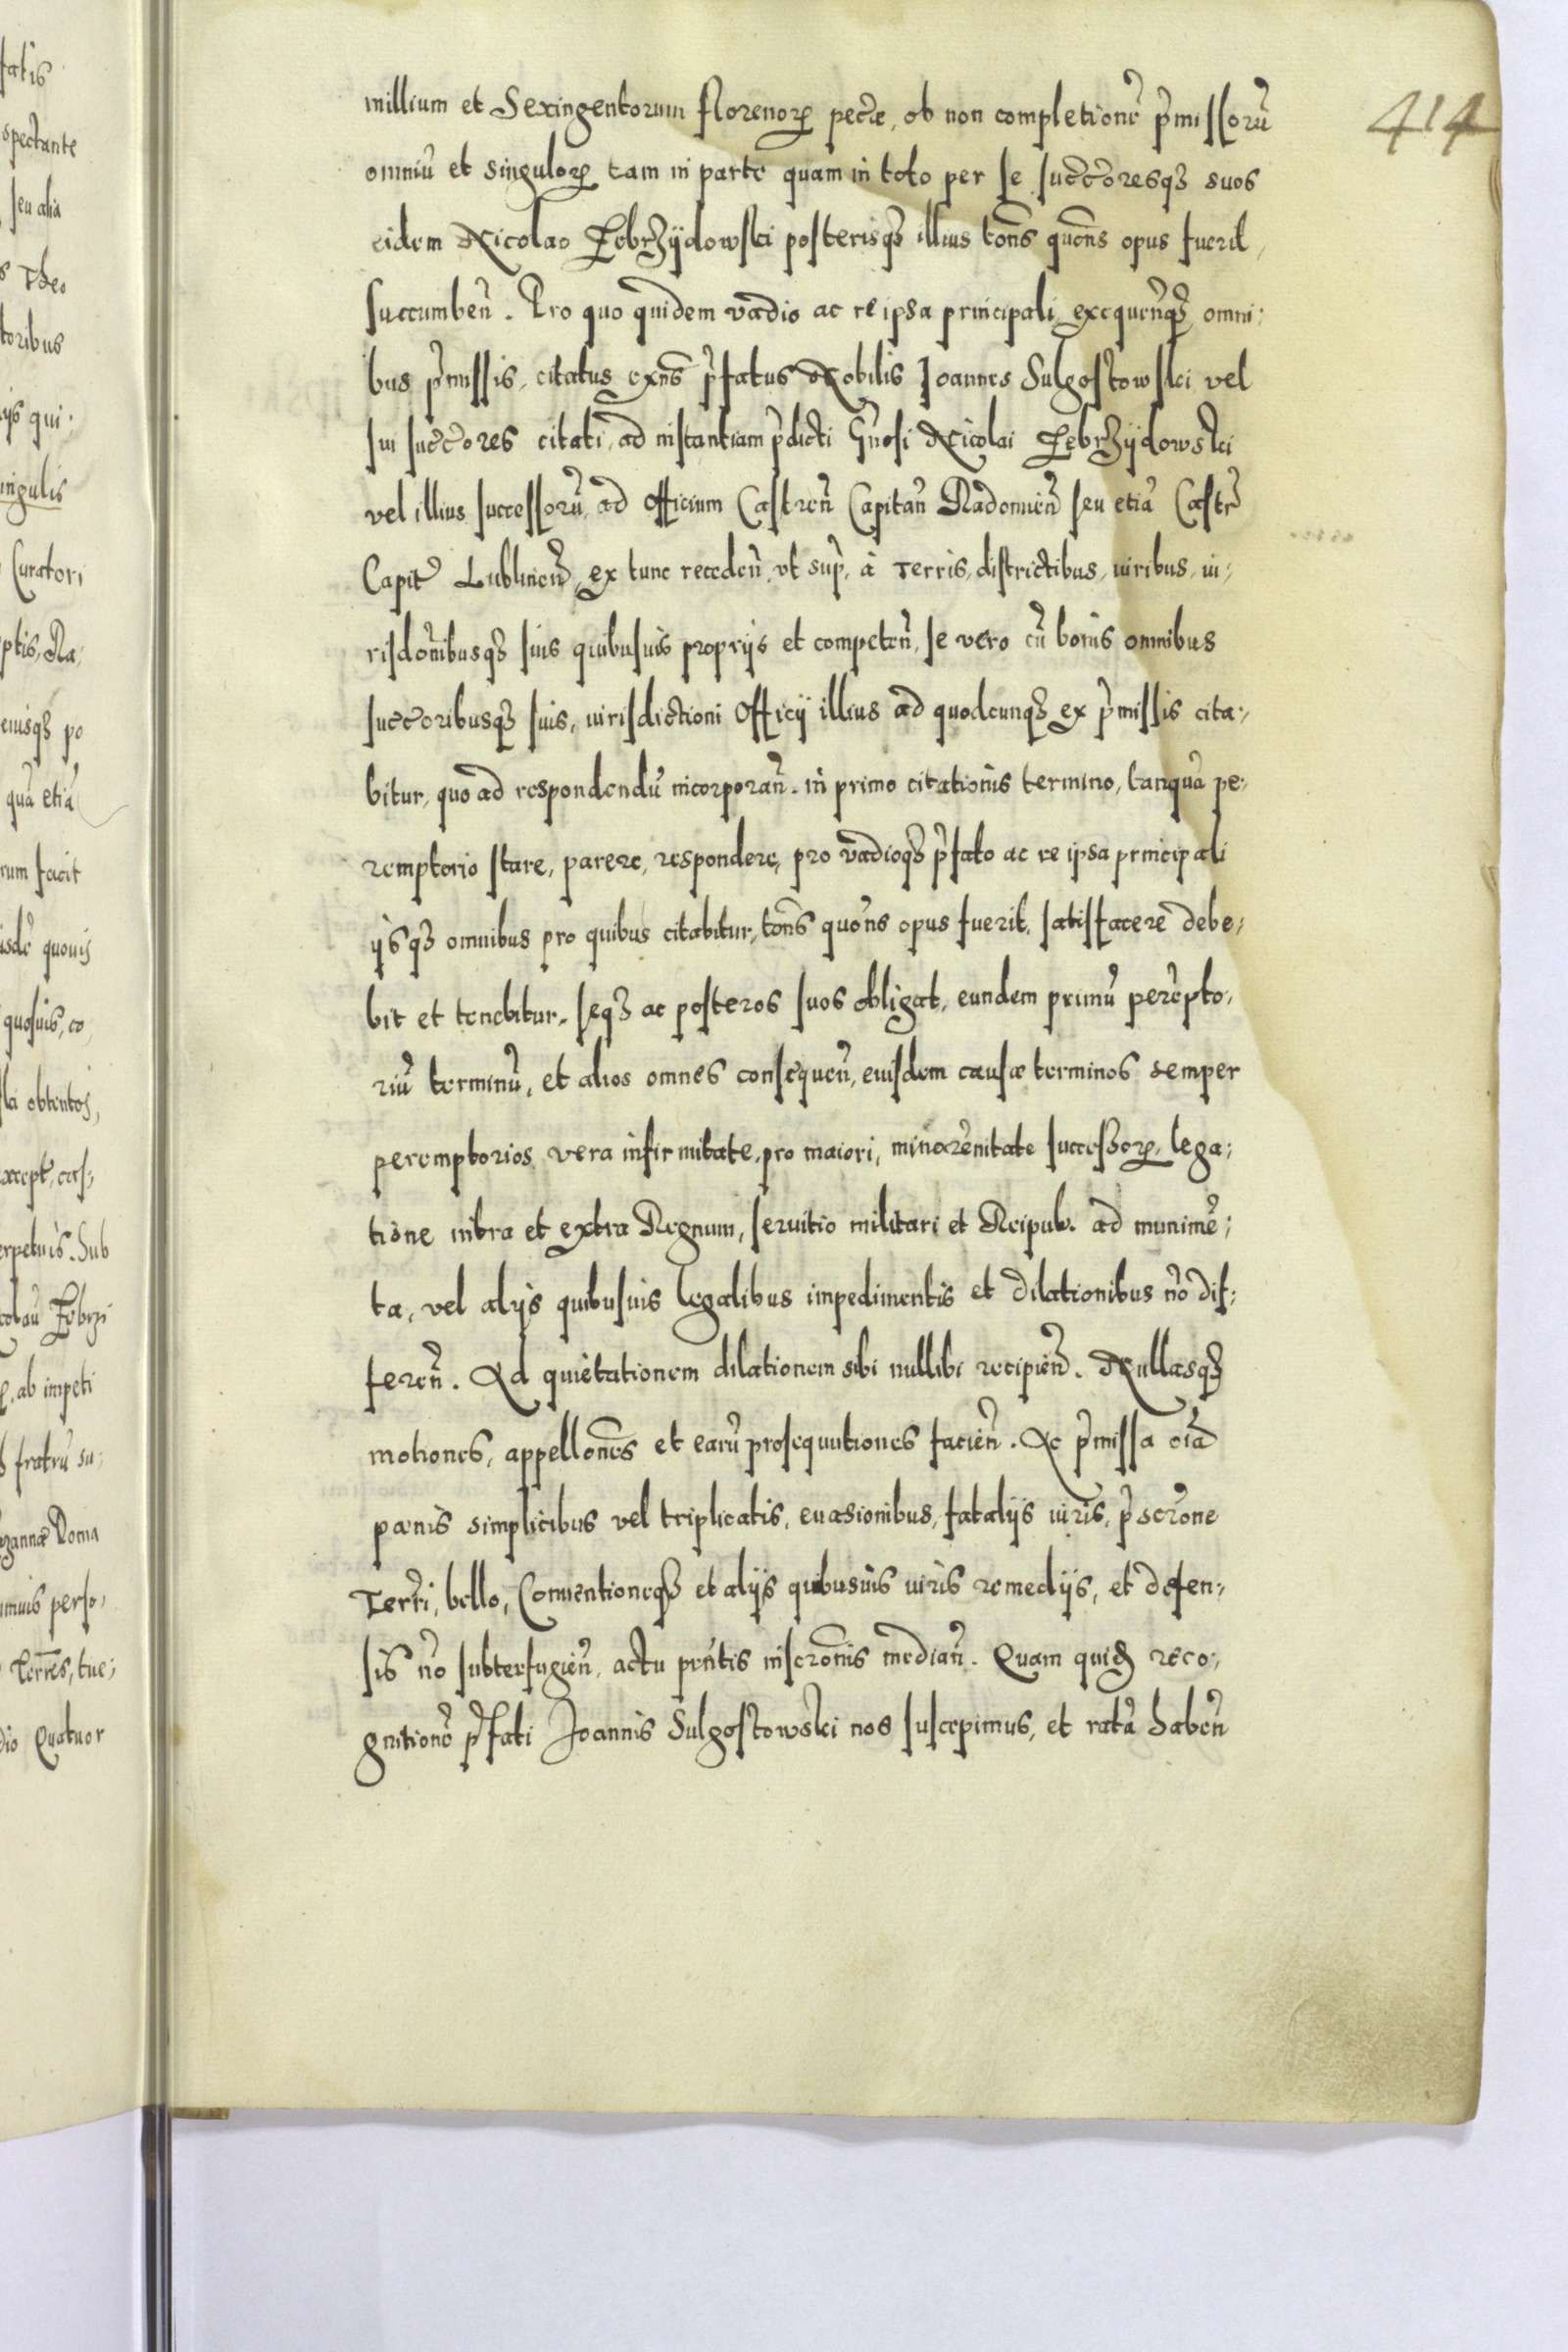 414
millium et Sexingentorum florenorꝝ pecũe, ob non completionẽ p̃missorũ
omniũ et singulorꝝ tam in parte quam in toto per se succ̃oresqꝫ suos
eidem Nicolao Zebrzÿdowski posterisqꝫ illius tõns quõns opus fuerit,
succumbeñ. Pro quo quidem vadio ac re ipsa principali exequeñqꝫ omni:
bus p̃missis, citatus exñs p̃fatus Nobilis Joannes Sulgostowski vel
sui succ̃ores citati, ad instantiam p̃dicti Gñosi Nicolai Zebrzÿdowski
vel illius successorũ, ad Officium Castreñ Capitañ Radomieñ seu etiã Castr̃
Capit̃ Lublineñ, ex tunc recedeñ, vt sup̃, à Terris, districtibus, iuribus, iu:
risdõnibusqꝫ suis quibusuis proprijs et competeñ, se vero cũ bonis omnibus
succ̃oribusqꝫ suis, iurisdictioni Officÿ illius ad quodcunqꝫ ex p̃missis cita:
bitur, quo ad respondendũ incorporañ. in primo citationis termino, tanquã pe:
remptorio stare, parere, respondere, pro vadioqꝫ p̃fato ac re ipsa principali
ÿsqꝫ omnibus pro quibus citabitur, tõns quõns opus fuerit, satisfacere debe:
bit et tenebitur. seqꝫ ac posteros suos obligat, eundem primũ perẽpto:
riũ terminũ, et alios omnes consequeñ, eiusdem causæ terminos semper
peremptorios, vera infirmitate, pro maiori, minorẽnitate successorꝝ, lega:
tione intra et extra Regnum, seruitio militari et Reipub. ad munimẽ:
ta, vel alijs quibusuis legalibus impedimentis et dilationibus nõ dif:
fereñ. Ad quietationem dilationem sibi nullibi recipieñ. Nullasqꝫ
motiones, appellões et earũ prosequutiones facieñ. Ac p̃missa oĩa
pænis simplicibus vel triplicatis, euasionibus, fatalijs iuris, p̃scr̃one
Terr̃i, bello, Conuentioneqꝫ et alijs quibusuis iuris remedijs, et defen:
sis nõ subterfugieñ, actu pñtis inscr̃onis mediañ. Quam quidẽ reco:
gnitionẽ p̃fati Joannis Sulgostowski nos suscepimus, et ratã habeñ